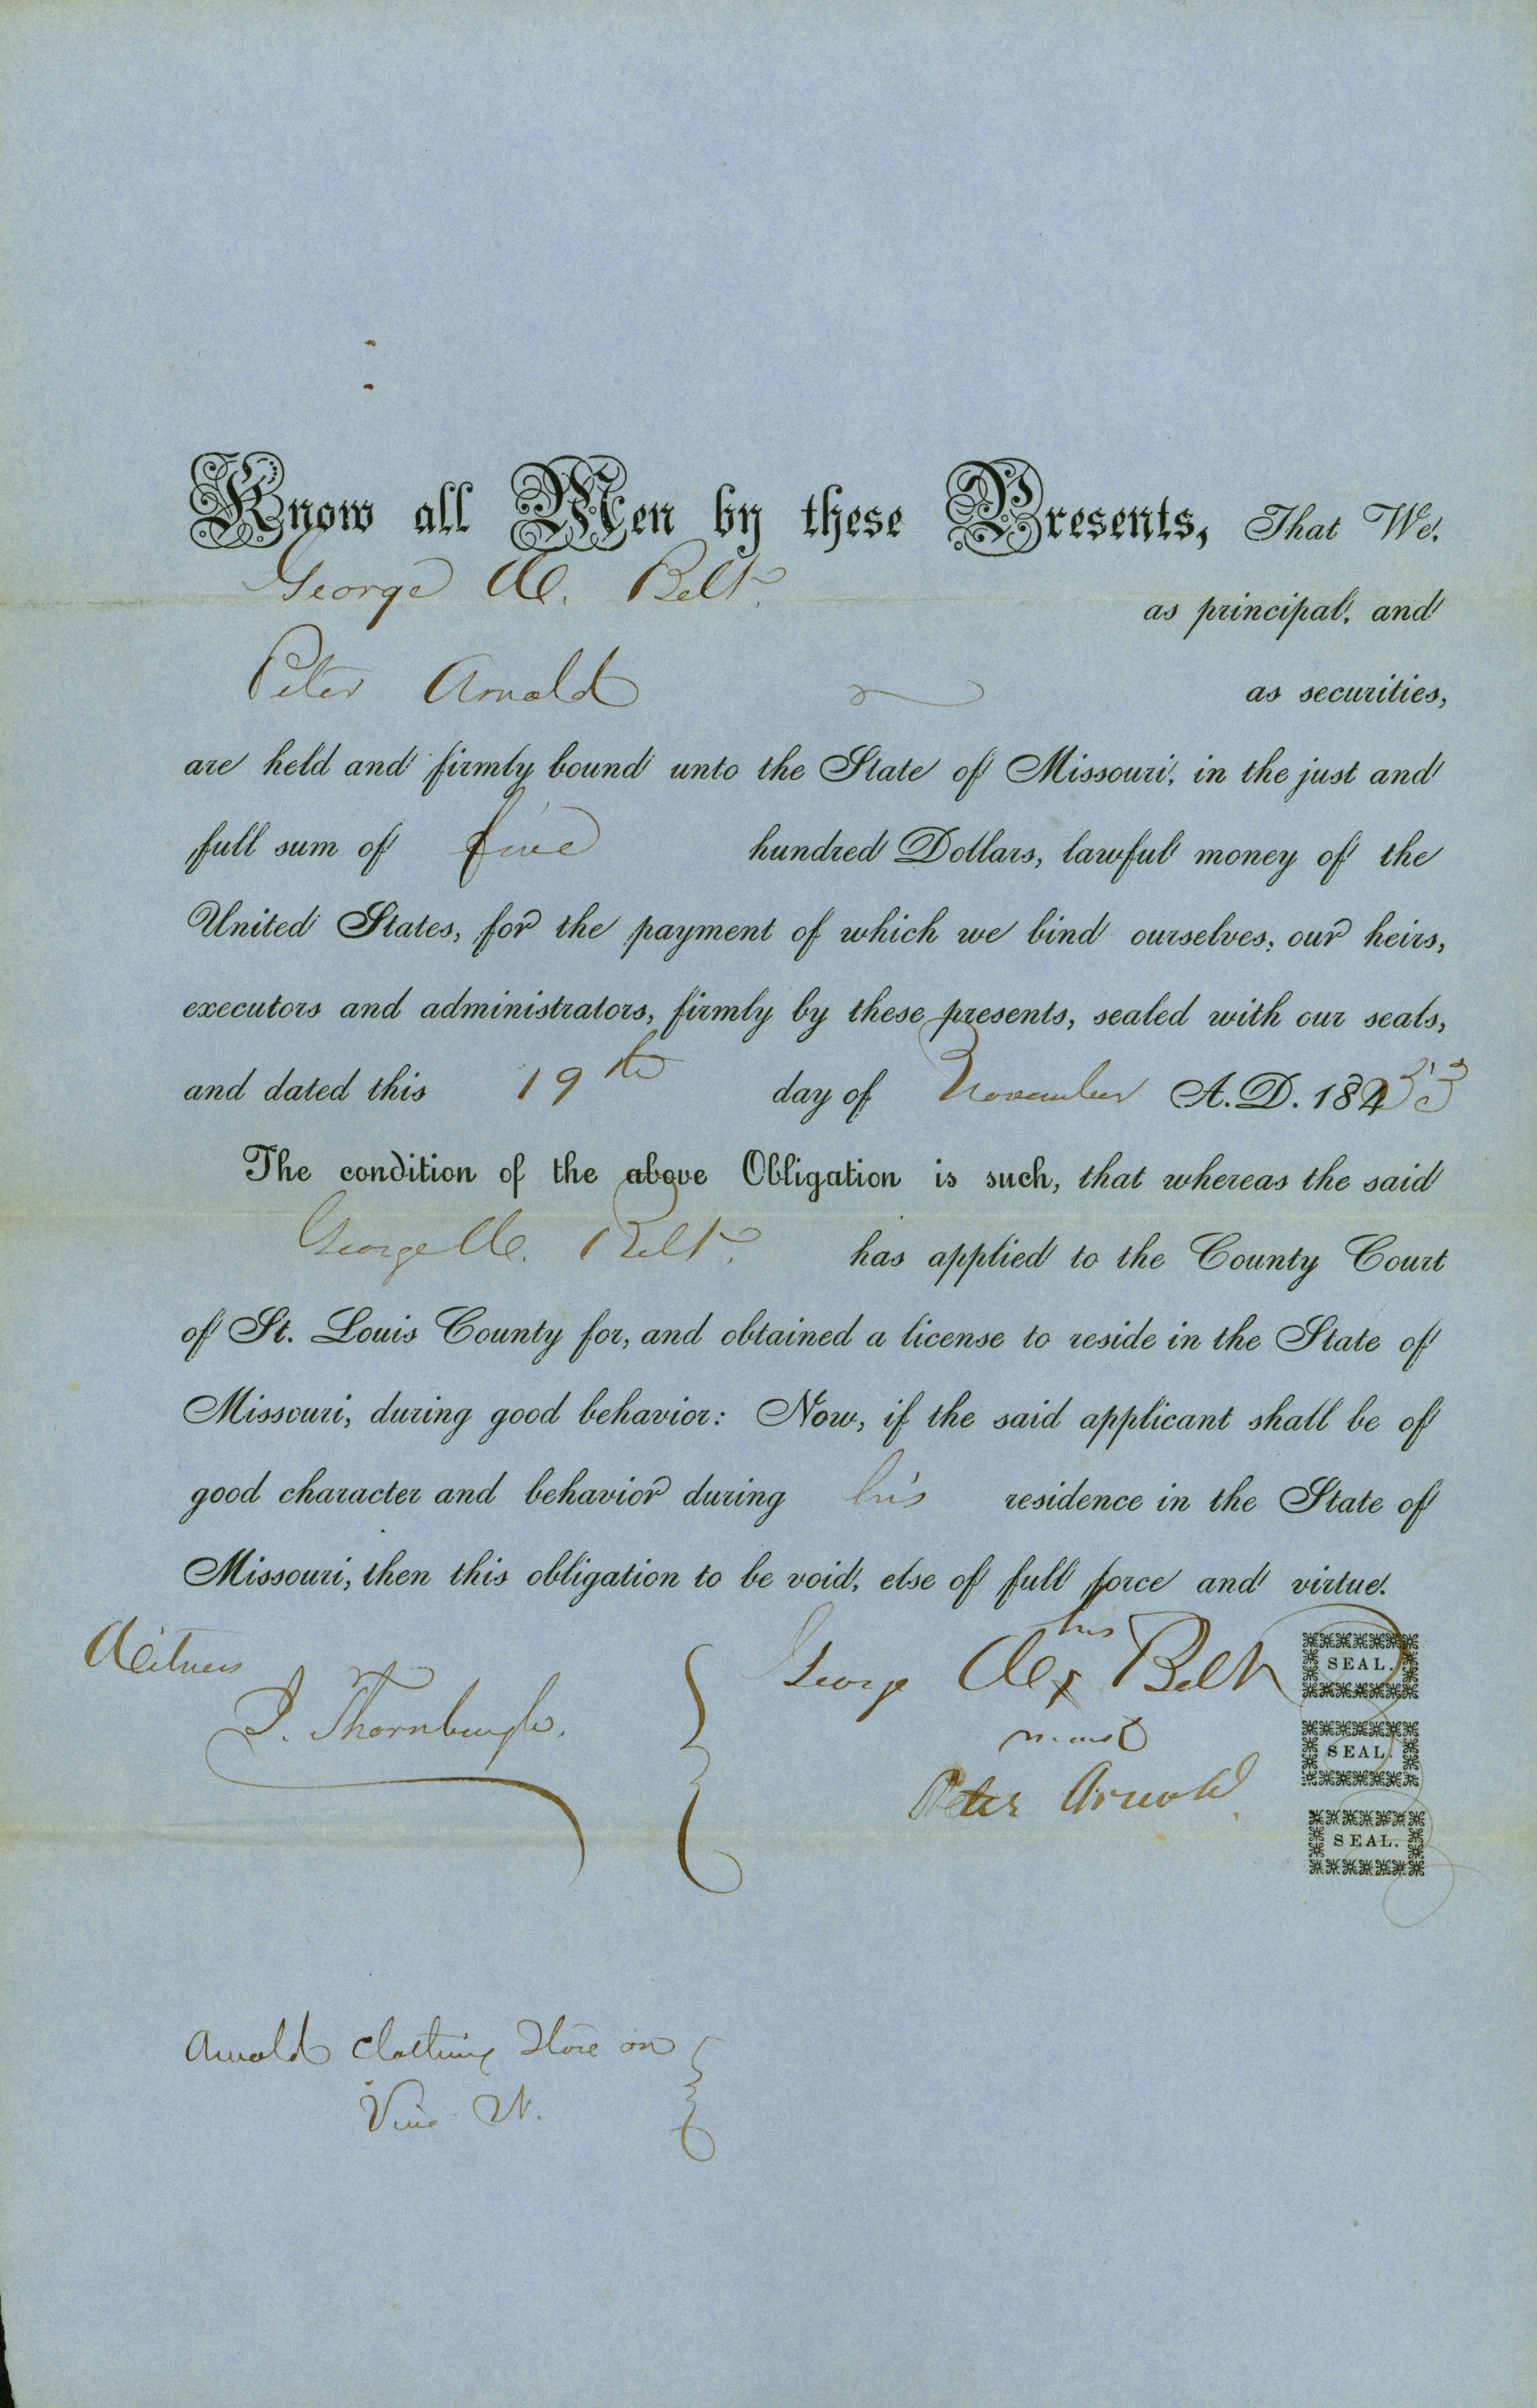 Know all Men by these Presents, That We,
George W. Belt. as principal, and
Peter Arnold as securities,
are held and firmly bound unto the State of Missouri, in the just and
full sum of five hundred Dollars, lawful money of the
United States, for the payment of which we bind ourselves, our heirs,
executors and administrators, firmly by these presents, sealed with our seals,
and dated this 19th day of November A.D. 1853
The condition of the above Obligation is such, that whereas the said
George W. Belt. has applied to the County Court
of St. Louis County for, and obtained a license to reside in the State of
Missouri, during good behavior: Now, if the said applicant shall be of
good character and behavior during his residence in the State of
Missouri, then this obligation to be void, else of full force and virtue.
his
Witness George W. x Belt SEAL.
J. Thornburgh. mark SEAL.
Peter Arnold
SEAL.
Arnold Clothing Store on
Vine St.